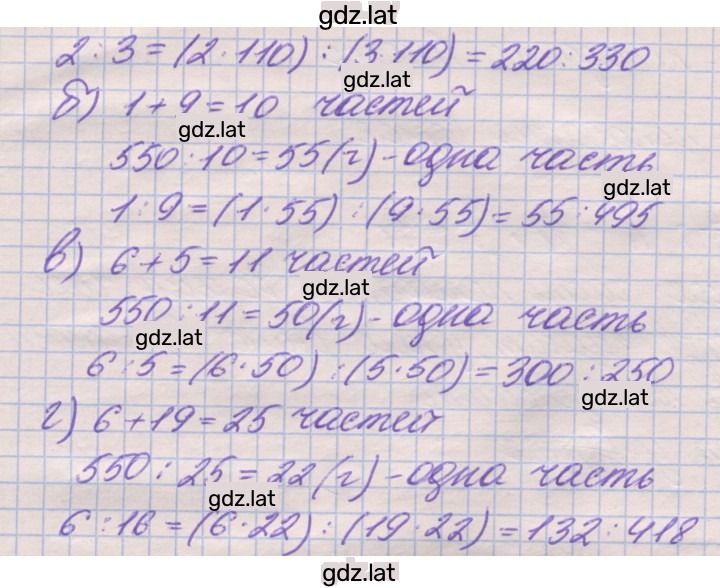 gdz.lat
2 : 3 = (2·110) : (3·110) = 220 : 330
gdz.lat
б) 1 + 9 = 10 частей
gdz.lat
550 : 10 = 55 (г) - одна часть
gdz.lat
1 : 9 = (1·55) : (9·55) = 55 : 495
в) 6 + 5 = 11 частей
gdz.lat
550 : 11 = 50 (г) - одна часть
gdz.lat
6 : 5 = (6·50) : (5·50) = 300 : 250
gdz.lat
г) 6 + 19 = 25 частей
550 : 25 = 22 (г) - одна часть
gdz.lat
6 : 16 = (6·22) : (19·22) = 132 : 418
gdz.lat